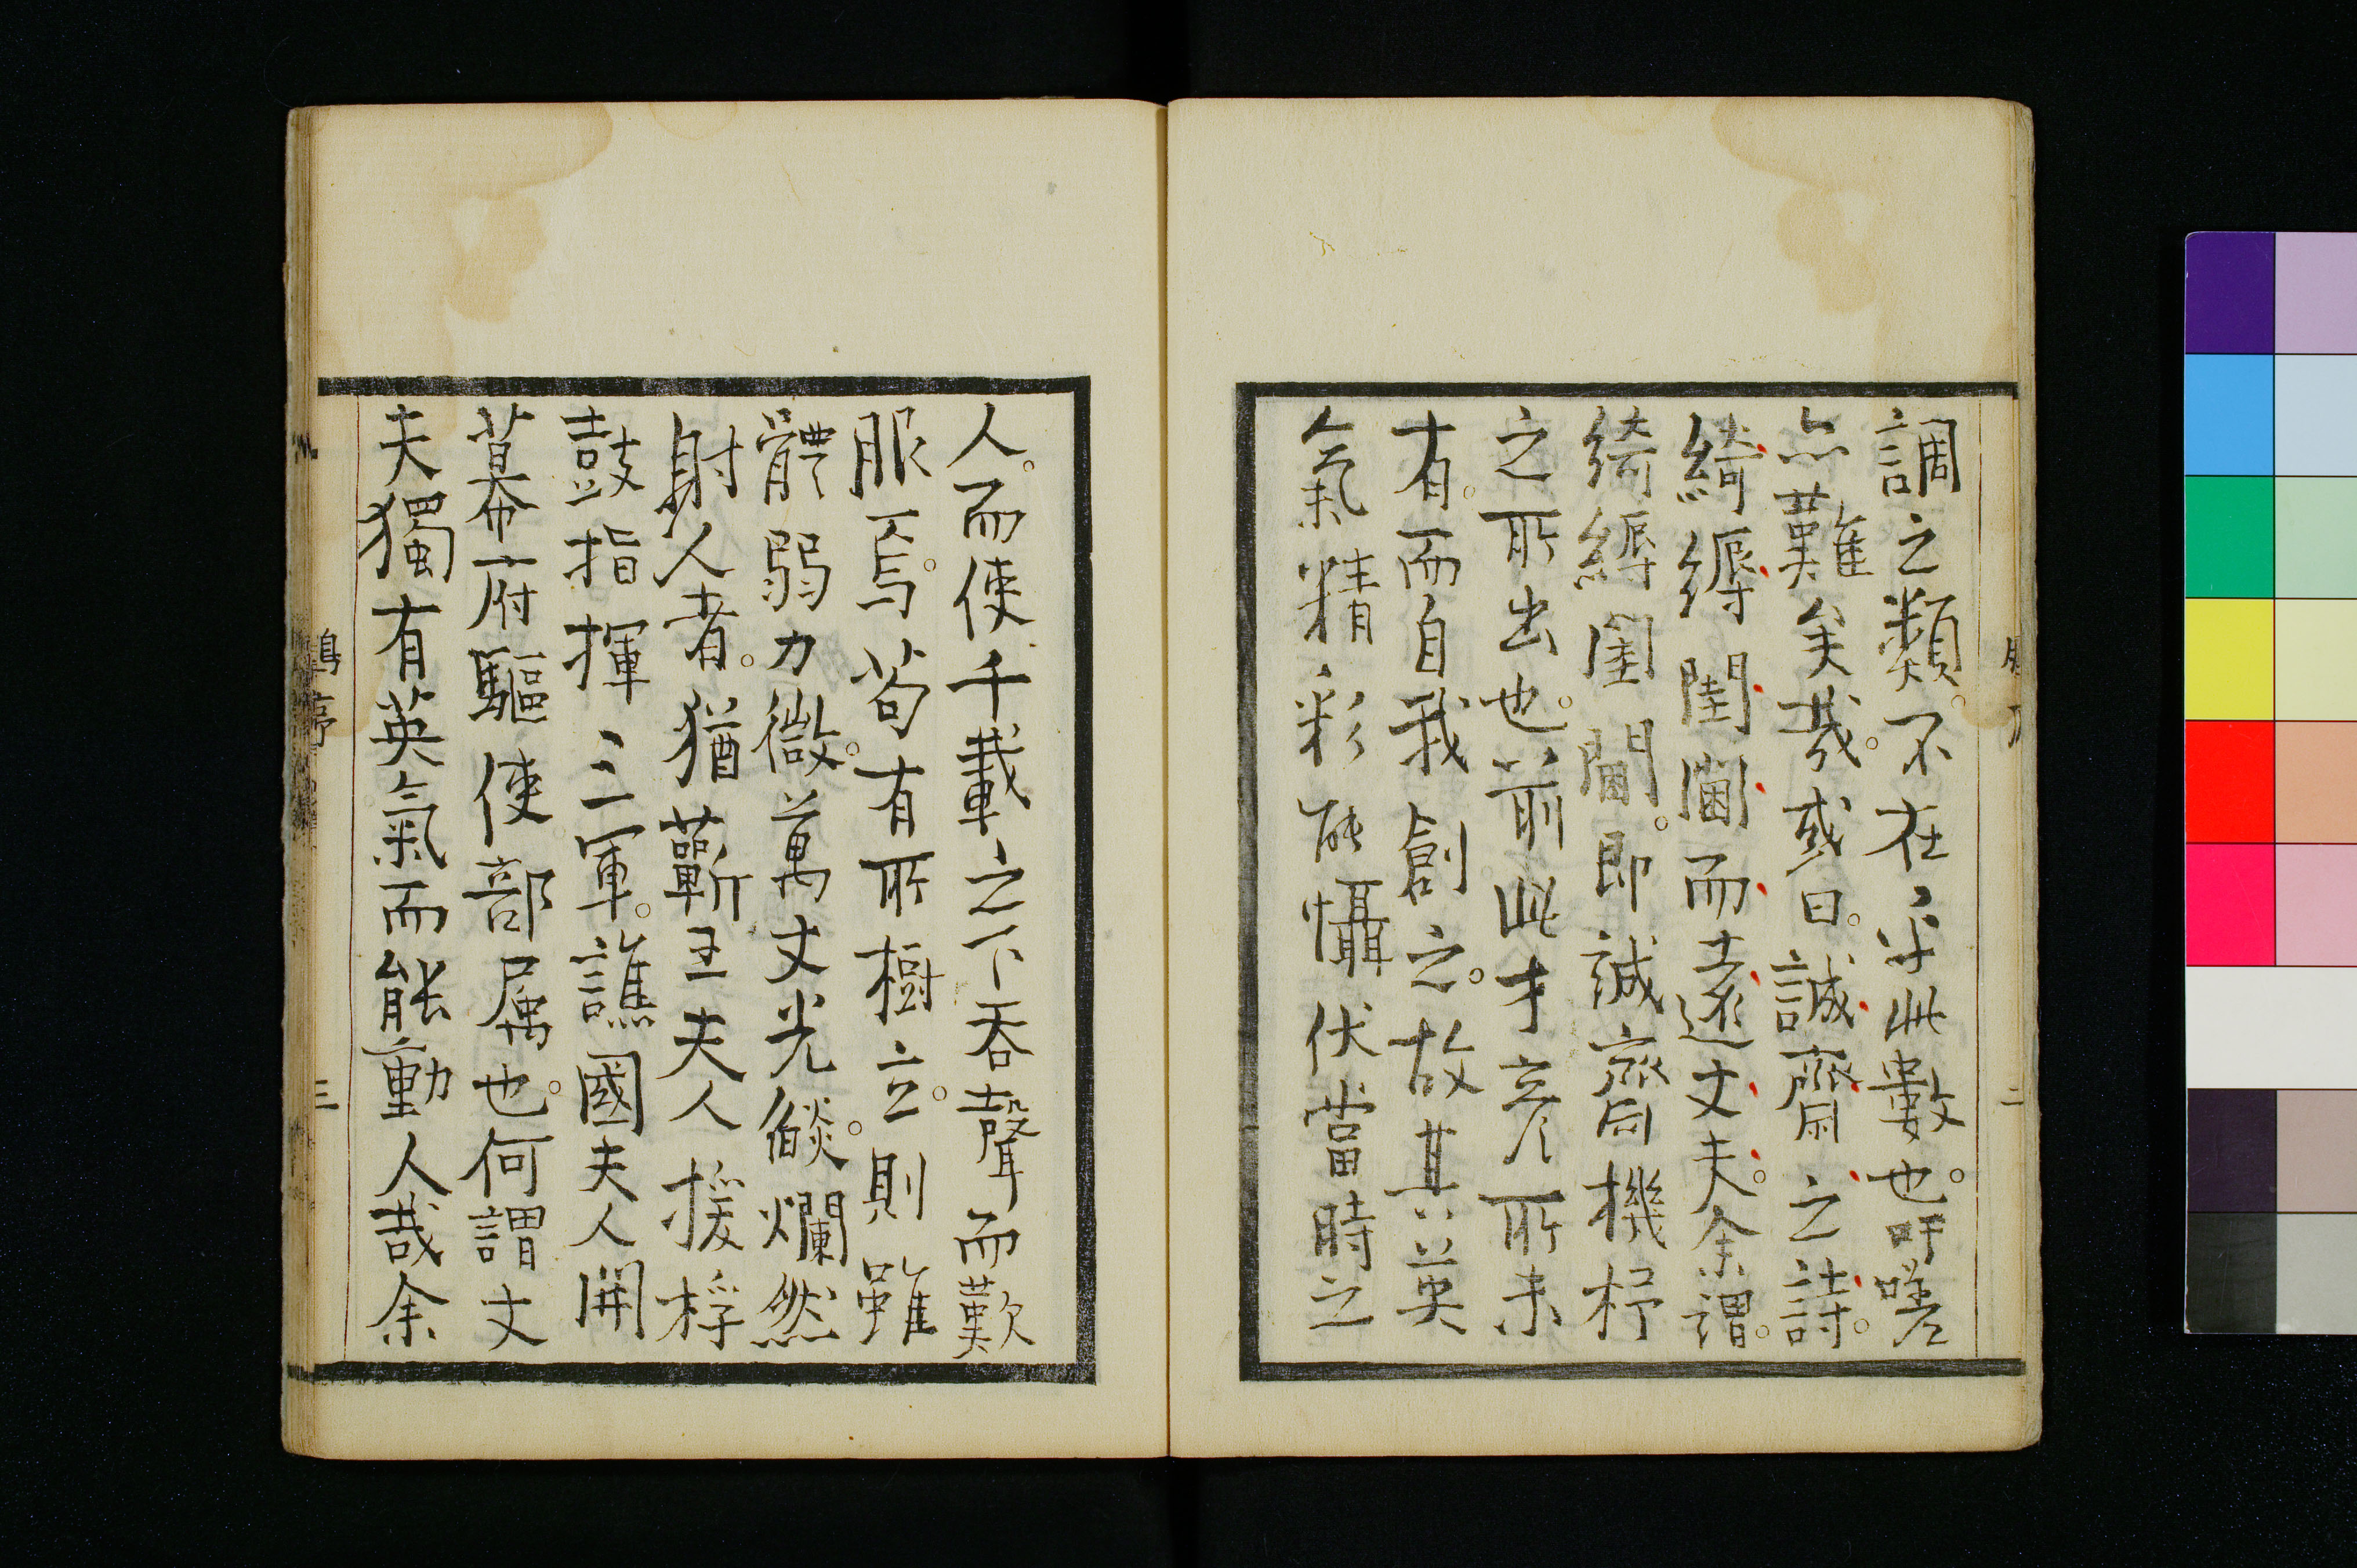 調之類。不在乎此數也。吁嗟
亦難矣哉。或曰。誠齋之詩。
綺縟閨閫而遠丈夫。余謂。
綺縟閨閫。即誠齋機杼
之所出也。前此才彥所未
有。而自我創之。故其英
氣精彩能懾伏當時之
人。而使千載之下吞聲而歎
服焉。苟有所樹立。則雖
體弱力微。萬丈光燄。爛然
射人者。猶蘄王夫人援桴
鼓指揮三軍。譙國夫人開
幕府驅使部屬也。何謂丈
夫獨有英氣而能動人哉余
二
三